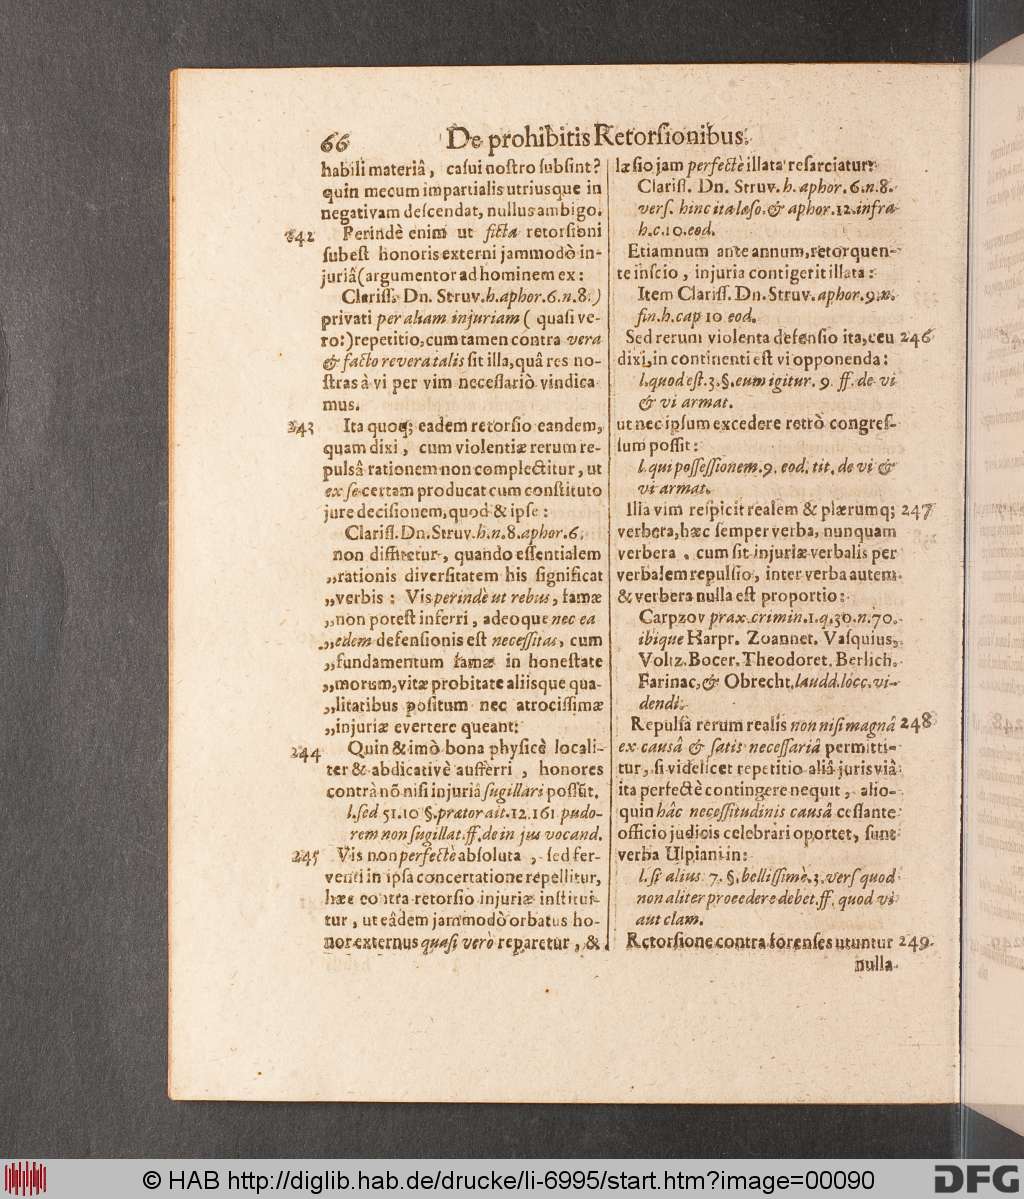 66 De prohibitis Retorsionibus.
habili materiâ, casui nostro subsint?
quin mecum impartialis utriusque in
negativam descendat, nullus ambigo.
242 Perindè enim ut ficta retorsioni
subest honoris externi jammodò in-
juriâ (argumentor ad hominem ex:
Clariss. Dn. Struv. h. aphor. 6. n. 8.)
privati per aliam injuriam (quasi ve-
ro:) repetitio, cum tamen contra vera
& facto revera talis sit illa, quâ res no-
stras à vi per vim necessariò vindica
mus.
243 Ita quoq; eadem retorsio eandem,
quam dixi, cum violentiæ rerum re-
pulsâ rationem non complectitur, ut
ex se certam producat cum constituto
jure decisionem, quod & ipse:
Clariss. Dn. Struv. h. n. 8. aphor. 6.
non diffitetur, quando essentialem
„rationis diversitatem his significat
„verbis: Vis perindè ut rebus, famæ
„non potest inferri, adeoque nec ea
„edem defensionis est necessitas, cum
„fundamentum famæ in honestate
„morum, vitæ probitate aliisque qua-
„litatibus positum nec atrocissimæ
„injuriæ evertere queant:
244 Quin & imò bona physicè locali-
ter & abdicativè aufferri, honores
contrà nõ nisi injuriâ sugillari possẽt.
l. sed 51. 10 §. prætor ait. 12. 161 pudo-
rem non sugillat. ff. de in jus vocand.
245 Vis non perfectè absoluta, sed fer-
venti in ipsa concertatione repellitur,
hæc contra retorsio injuriæ institui-
tur, ut eâdem jammodò orbatus ho-
nor externus quasi verò reparetur, &
læsio jam perfectè illata resarciatur:
Clariss. Dn. Struv. h. aphor. 6. n. 8.
vers. hinc ita læso. & aphor. 12. infra
h. c. 10. eod.
Etiamnum ante annum, retorquen-
te inscio, injuria contigerit illata:
Item Clariss. Dn. Struv. aphor. 9. n.
fin. h. cap 10 eod.
Sed rerum violenta defensio ita, ceu 246
dixi, in continenti est vi opponenda:
l. quod est. 3. §. eum igitur. 9 ff. de vi
& vi armat.
ut nec ipsum excedere retrò congres-
sum possit:
l. qui possessionem. 9. eod. tit. de vi &
vi armat.
Illa vim respicit realem & plærumq; 247
verbera, hæc semper verba, nunquam
verbera, cum sit injuriæ verbalis per
verbalem repulsio, inter verba autem
& verbera nulla est proportio:
Carpzov prax. crimin. 1. q. 30. n. 70.
ibique Harpr. Zoannet. Vasquius,
Voltz. Bocer. Theodoret. Berlich.
Farinac, & Obrecht, laudd. locc. vi-
dendi.
Repulsâ rerum realis non nisi magnâ 248
ex causâ & satis necessariâ permitti-
tur, si videlicet repetitio aliâ juris viâ
ita perfectè contingere nequit, alio-
quin hâc necessitudinis causâ cessante
officio judicis celebrari oportet, sunt
verba Ulpiani in:
l. si alius 7. §. bellissimè. 3. vers quod
non aliter procedere debet. ff. quod vi
aut clam.
Retorsione contra forenses utuntur 249
nulla
© HAB http://diglib.hab.de/drucke/li-6995/start.htm?image=00090
DFG